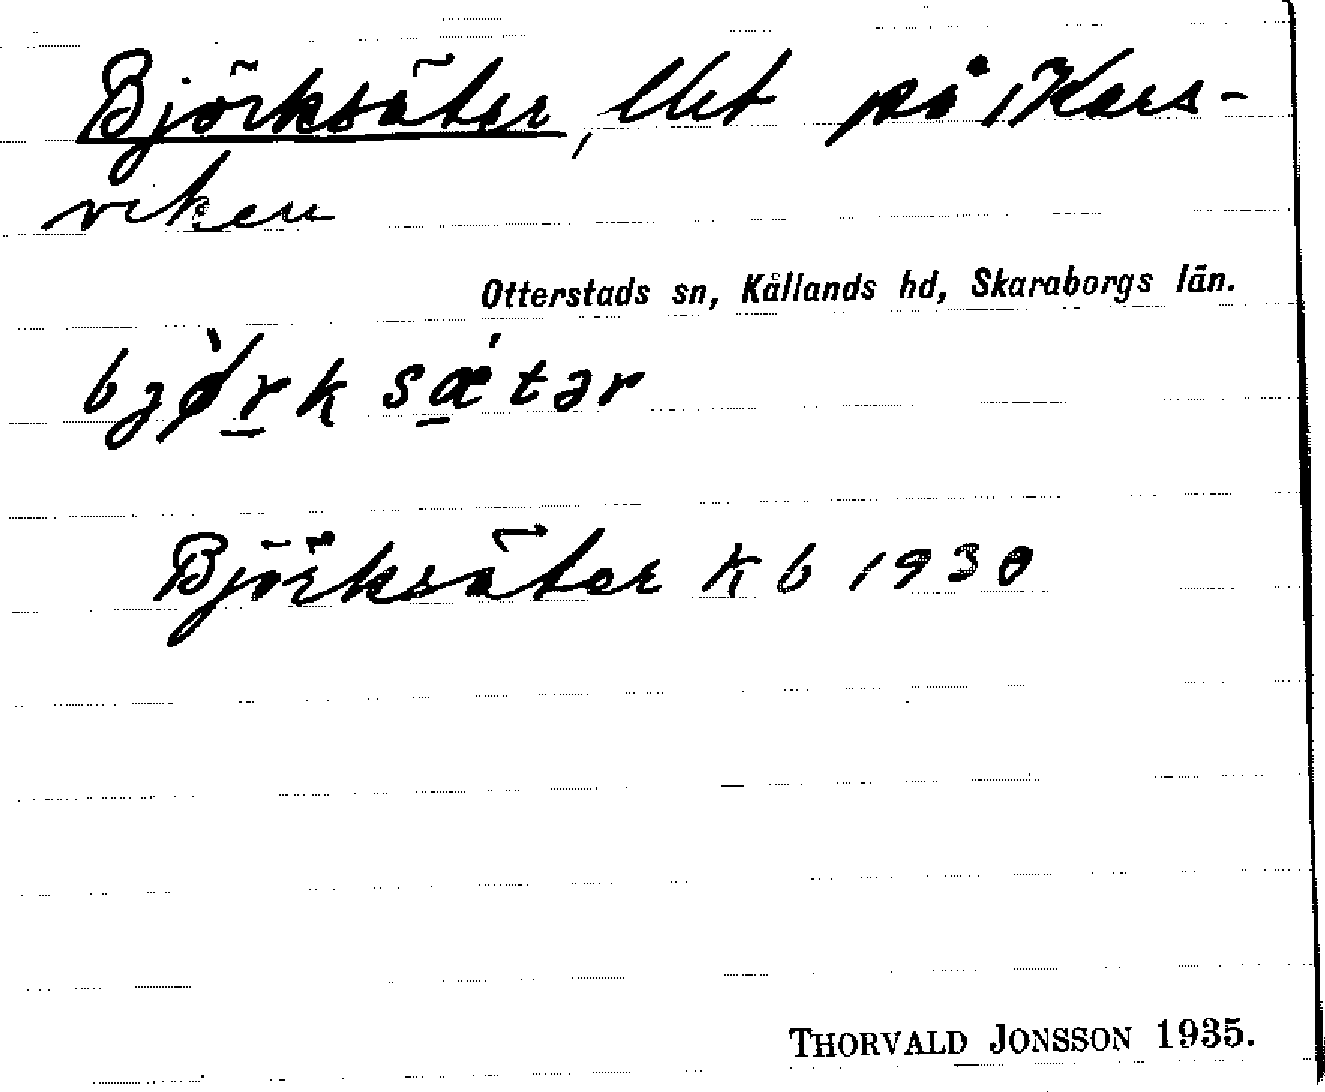 Björksäter, llet på Kars-
viken
Otterstads sn, Kållands hd, Skaraborgs län.
bjø̀rksǽtər
Björksäter kb 1930
THORVALD JONSSON 1935.